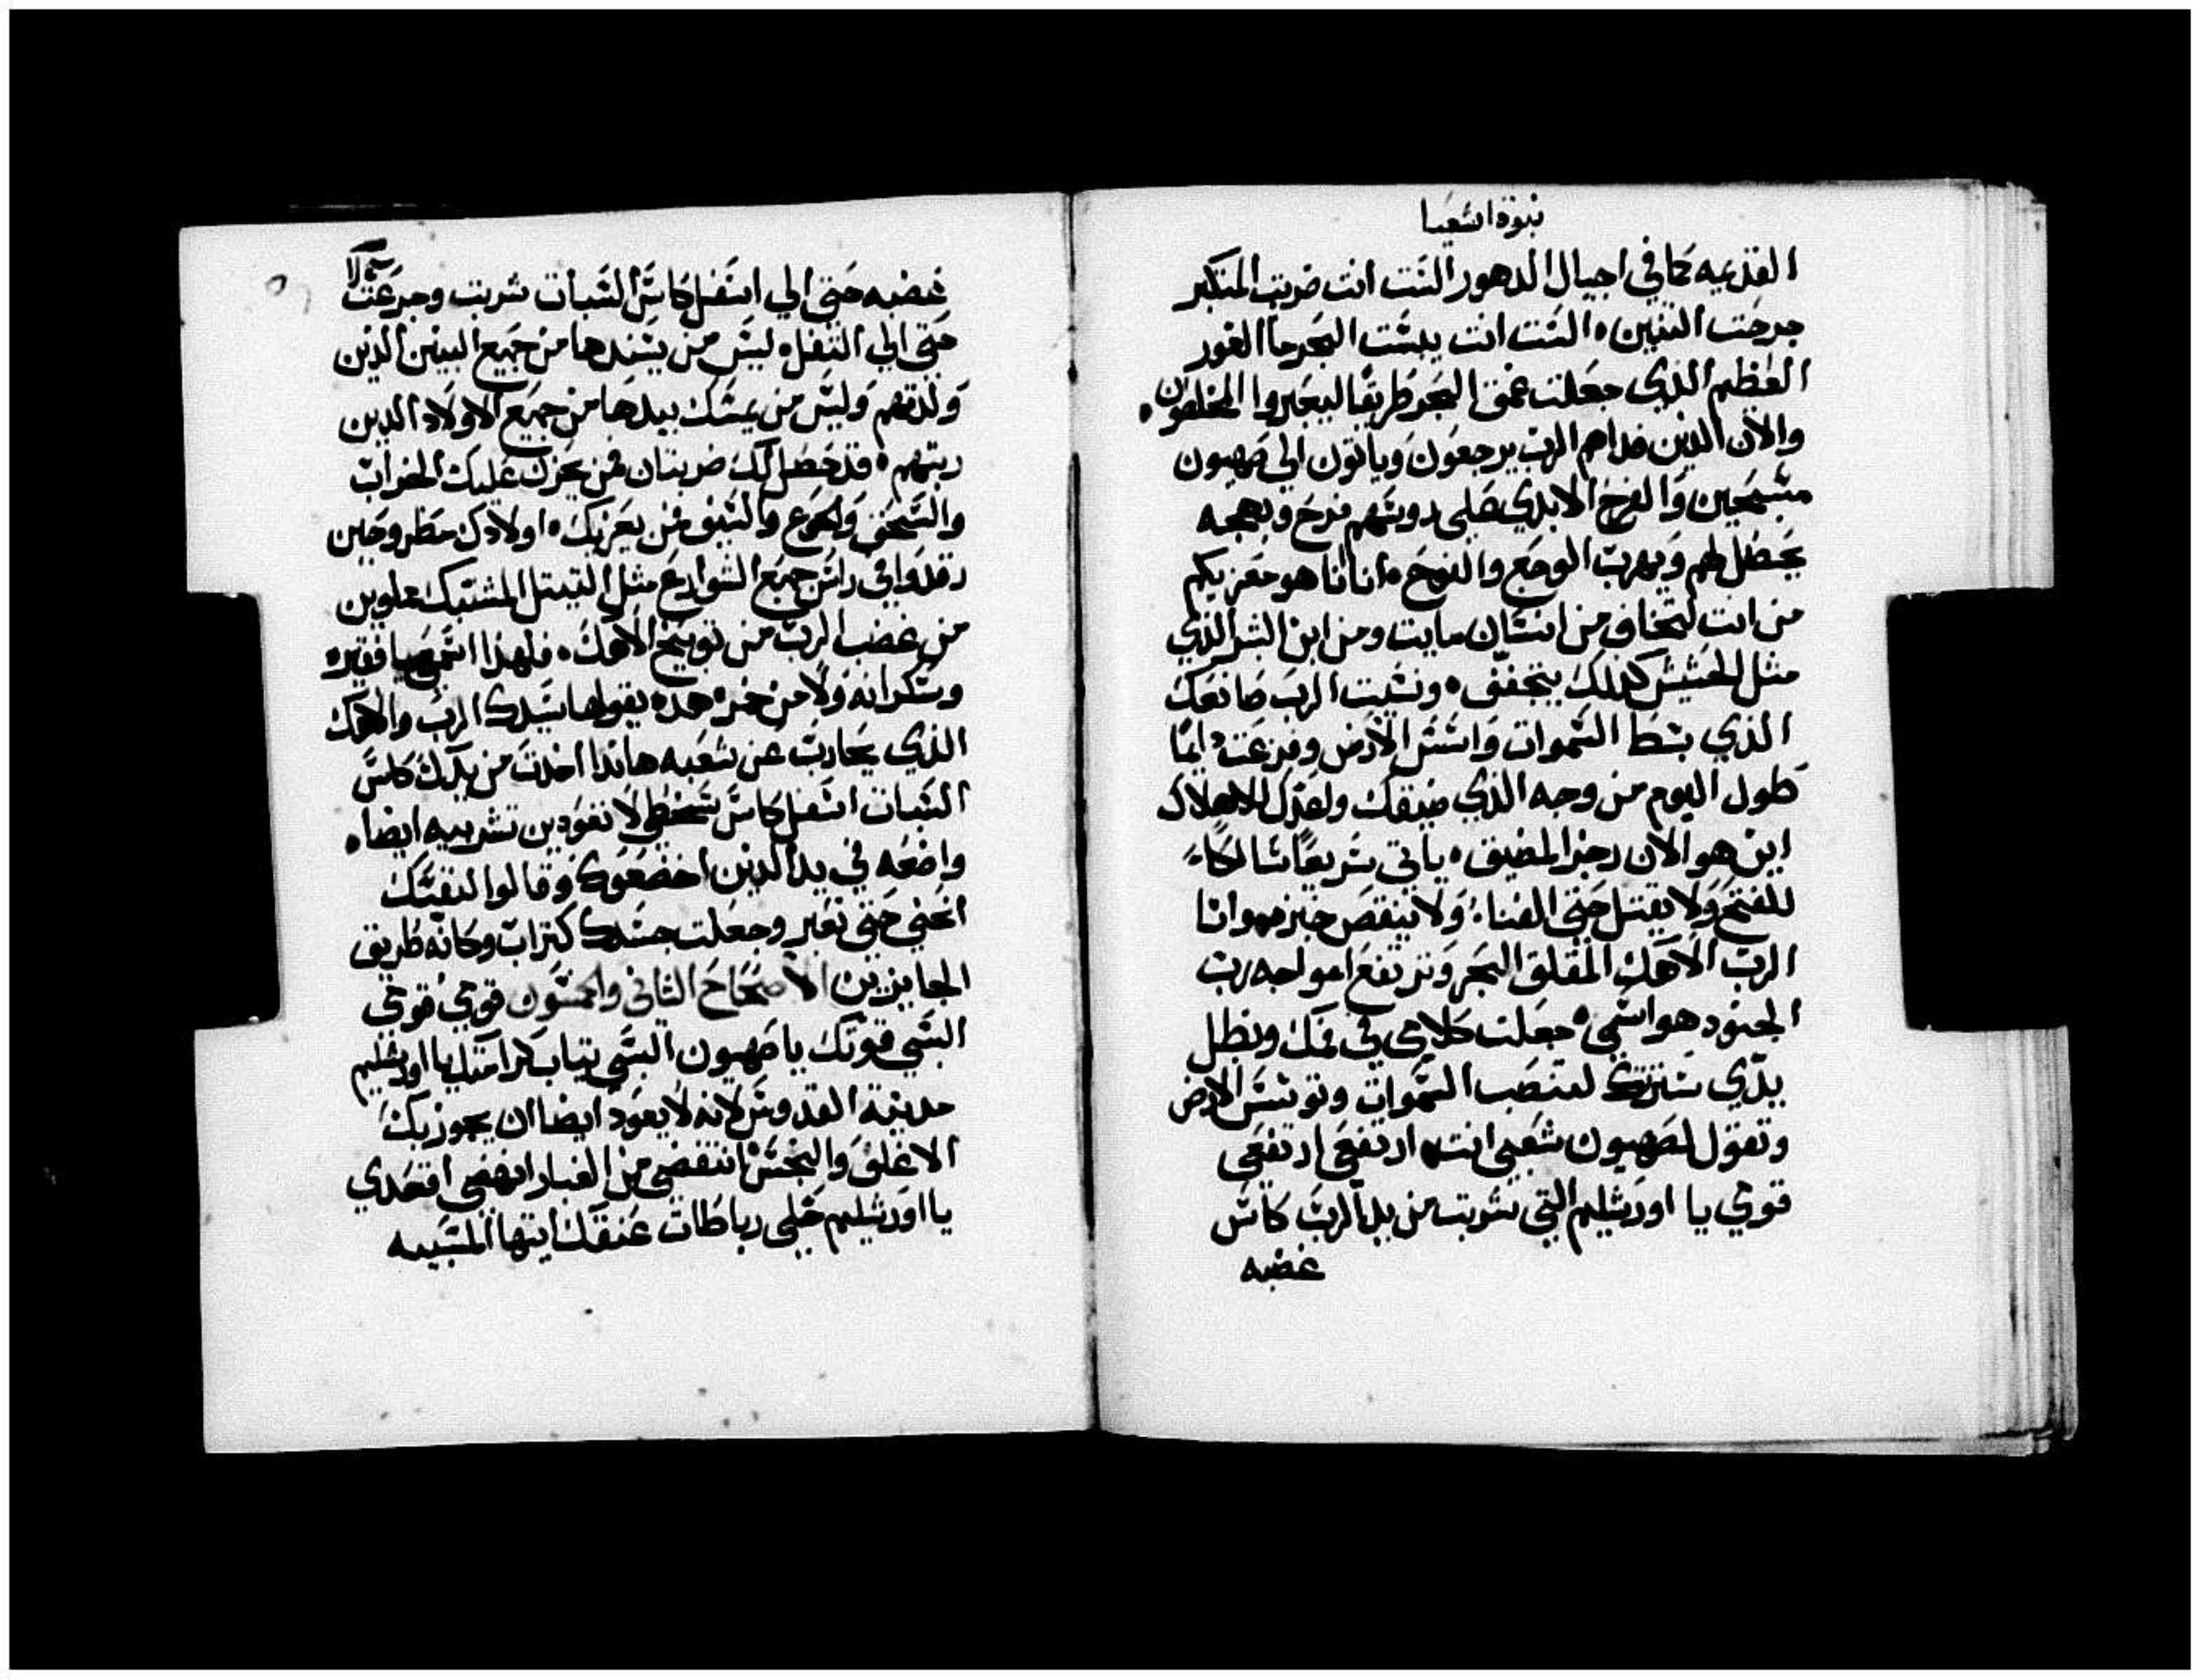 نبوة اشعيا
القديمه كما في اجيال الدهور الست انت ضربت المتكبر
جرحت التنين الست انت يبست البحر ما الغور
العظيم الذي جعلت عمق البحر طريقا ليعبروا المخلصون
والان الذين فداهم الرب يرجعون وياتون الي صهيون
مسبحين والفرح الابدي علي روسهم فرح وبهجه
يحصل لهم ويهرب الوجع والنوح انا انا هو معزيكم
من انت لتخاف من انسان مايت ومن ابن البشر الذي
مثل الحشيش كذلك يتجفف ونسيت الرب صانعك
الذي بسط السموات واسس الارض وفزعت دايما
طول اليوم من وجه الذي ضيقك ولعدك للاهلاك
اين هو الان رجز المضيق ياتي سريعا سالكا
للفتح ولا يقتل حتي الفنا ولا ينقص خبزه وانا
الرب الاهك المقلق البحر وترتفع امواجه رب
الجنود هو اسمي جعلت كلامي في فمك وبظل
يدي سترتك لتنصب السموات وتوسس الارض
وتقول لصهيون شعبي انت ارتفعي ارتفعي
قومي يا اورشليم التي شربت من يد الرب كاس
غضبه
غضبه حتي الي اسفل كاس السبات شربت وجرعت
حتي الي التفل ليس من يسندها من جميع البنين الذين
ولدتهم وليس من يمسك بيدها من جميع الاولاد الذين
ربتهم قد حصل لك ضربتان فمن يحزن عليك الخراب
والسحق والجوع والسيف فمن يعزيك اولادك مطروحين
رقدوا في راس جميع الشوارع مثل التيتل المشتبك مملوين
من غضب الرب من توبيخ الاهك فلهذا اسمعي يا فقيره
وسكرانه ولا من خمر هذه يقولها سيدك الرب والاهك
الذي يحارب عن شعبه هانذا اخذت من يدك كاس
السبات اسفل كاس سخطي لا تعودين تشربيه ايضا
واضعه في يد الذين اخضعوك وقالوا لنفسك
انحني حتي نعبر وجعلت جسدك كتراب وكانه طريق
الجايزين الاصحاح الثاني والخمسون قومي قومي
البسي قوتك يا صهيون البسي تياب كرامتك يا اورشليم
مدينة القدوس لانه لا يعود ايضا ان يجوز بك
الاغلف والنجس انتفضي من الغبار انهضي اقعدي
يا اورشليم حلي رباطات عنقك ايتها المسبيه